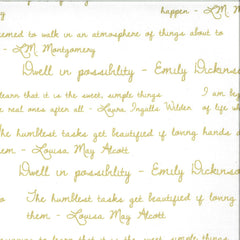 happen - L.M. M
Montgomery
seemed to walk in an atmosphere of things about to
- L.M. Montgomery
Dwell in possibility - Emily Dickinson
learn that it is the sweet, simple things
I am beg
e real ones after all - Laura Ingalls Wilder
of life wh
The humblest tasks get beautified if loving hands d
them - Louisa May Alcott.
Dwell in possibility - Emily Dickins
The humblest tasks get beautified if loving
them - Louisa May Alcott.
learn that it is the sweet, simple